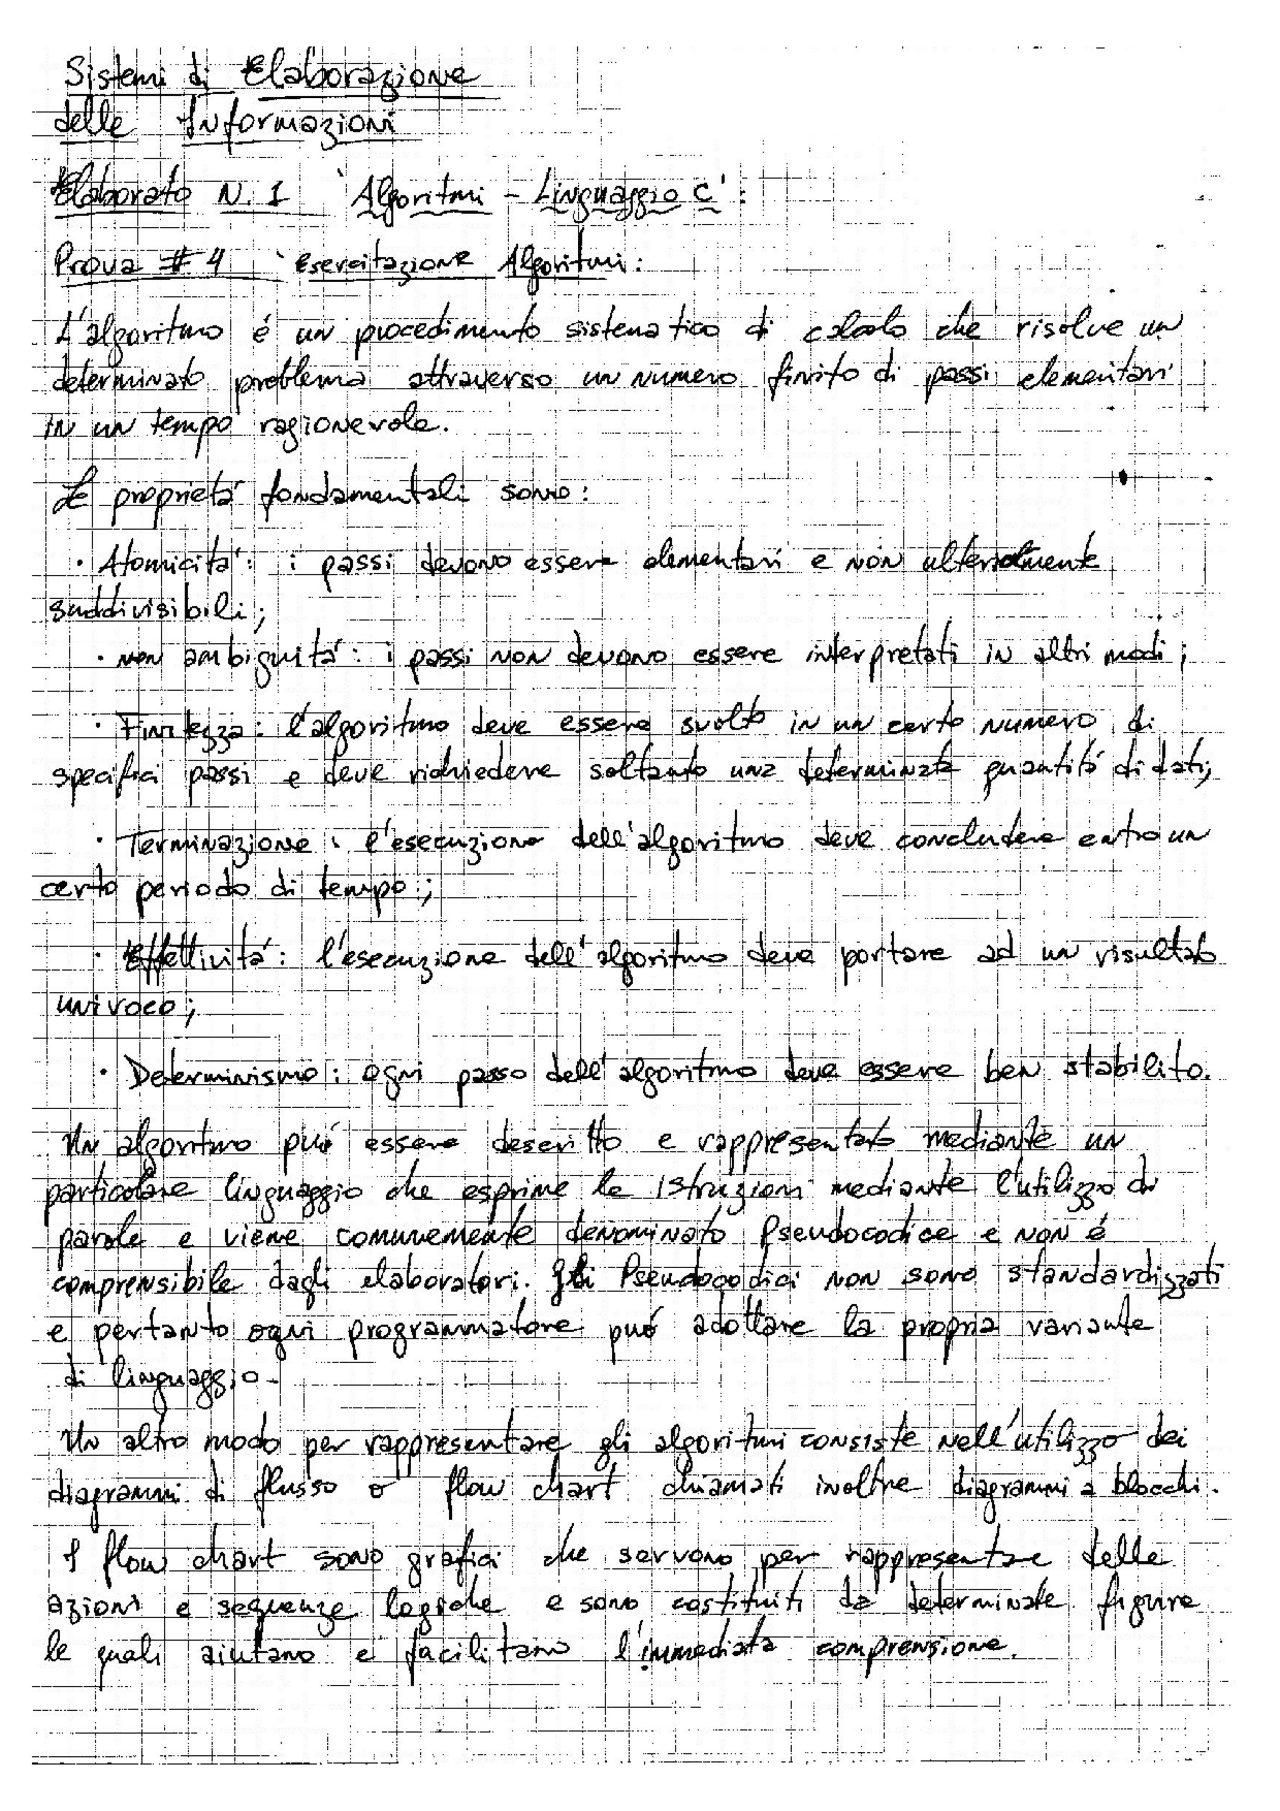 Sistemi di Elaborazione
delle Informazioni
Elaborato N. 1 'Algoritmi - Linguaggio C':
Prova # 4 'Esercitazione Algoritmi:
L'algoritmo é un procedimento sistematico di calcolo che risolve un
determinato problema attraverso un numero finito di passi elementari
in un tempo ragionevole.
Le proprietá fondamentali sono:
· Atomicitá: i passi devono essere elementari e non ulteriormente
suddivisibili;
· non ambiguitá: i passi non devono essere interpretati in altri modi;
· Finitezza: l'algoritmo deve essere svolto in un certo numero di
specifici passi e deve richiedere soltanto una determinata quantitá di dati;
· Terminazione: l'esecuzione dell'algoritmo deve concludere entro un
certo periodo di tempo;
· Effettivitá: l'esecuzione dell'algoritmo deve portare ad un risultato
univoco;
· Determinismo: ogni passo dell'algoritmo deve essere ben stabilito.
Un algoritmo puó essere descritto e rappresentato mediante un
particolare linguaggio che esprime le istruzioni mediante l'utilizzo di
parole e viene comunemente denominato Pseudocodice e non é
comprensibile dagli elaboratori. Gli Pseudocodici non sono standardizzati
e pertanto ogni programmatore puó adottare la propria variante
di linguaggio.
Un altro modo per rappresentare gli algoritmi consiste nell'utilizzo dei
diagrammi di flusso o flow chart chiamati inoltre diagrammi a blocchi.
I flow chart sono grafici che servono per rappresentare delle
azioni e sequenze logiche e sono costituiti da determinate figure
le quali aiutano e facilitano l'immediata comprensione.